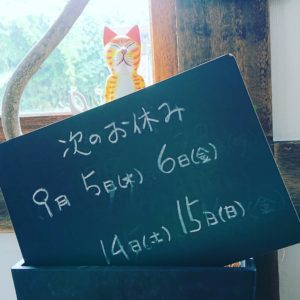 次のお休み
9月 5日(木) 6日(金)
14日(土) 15日(日)